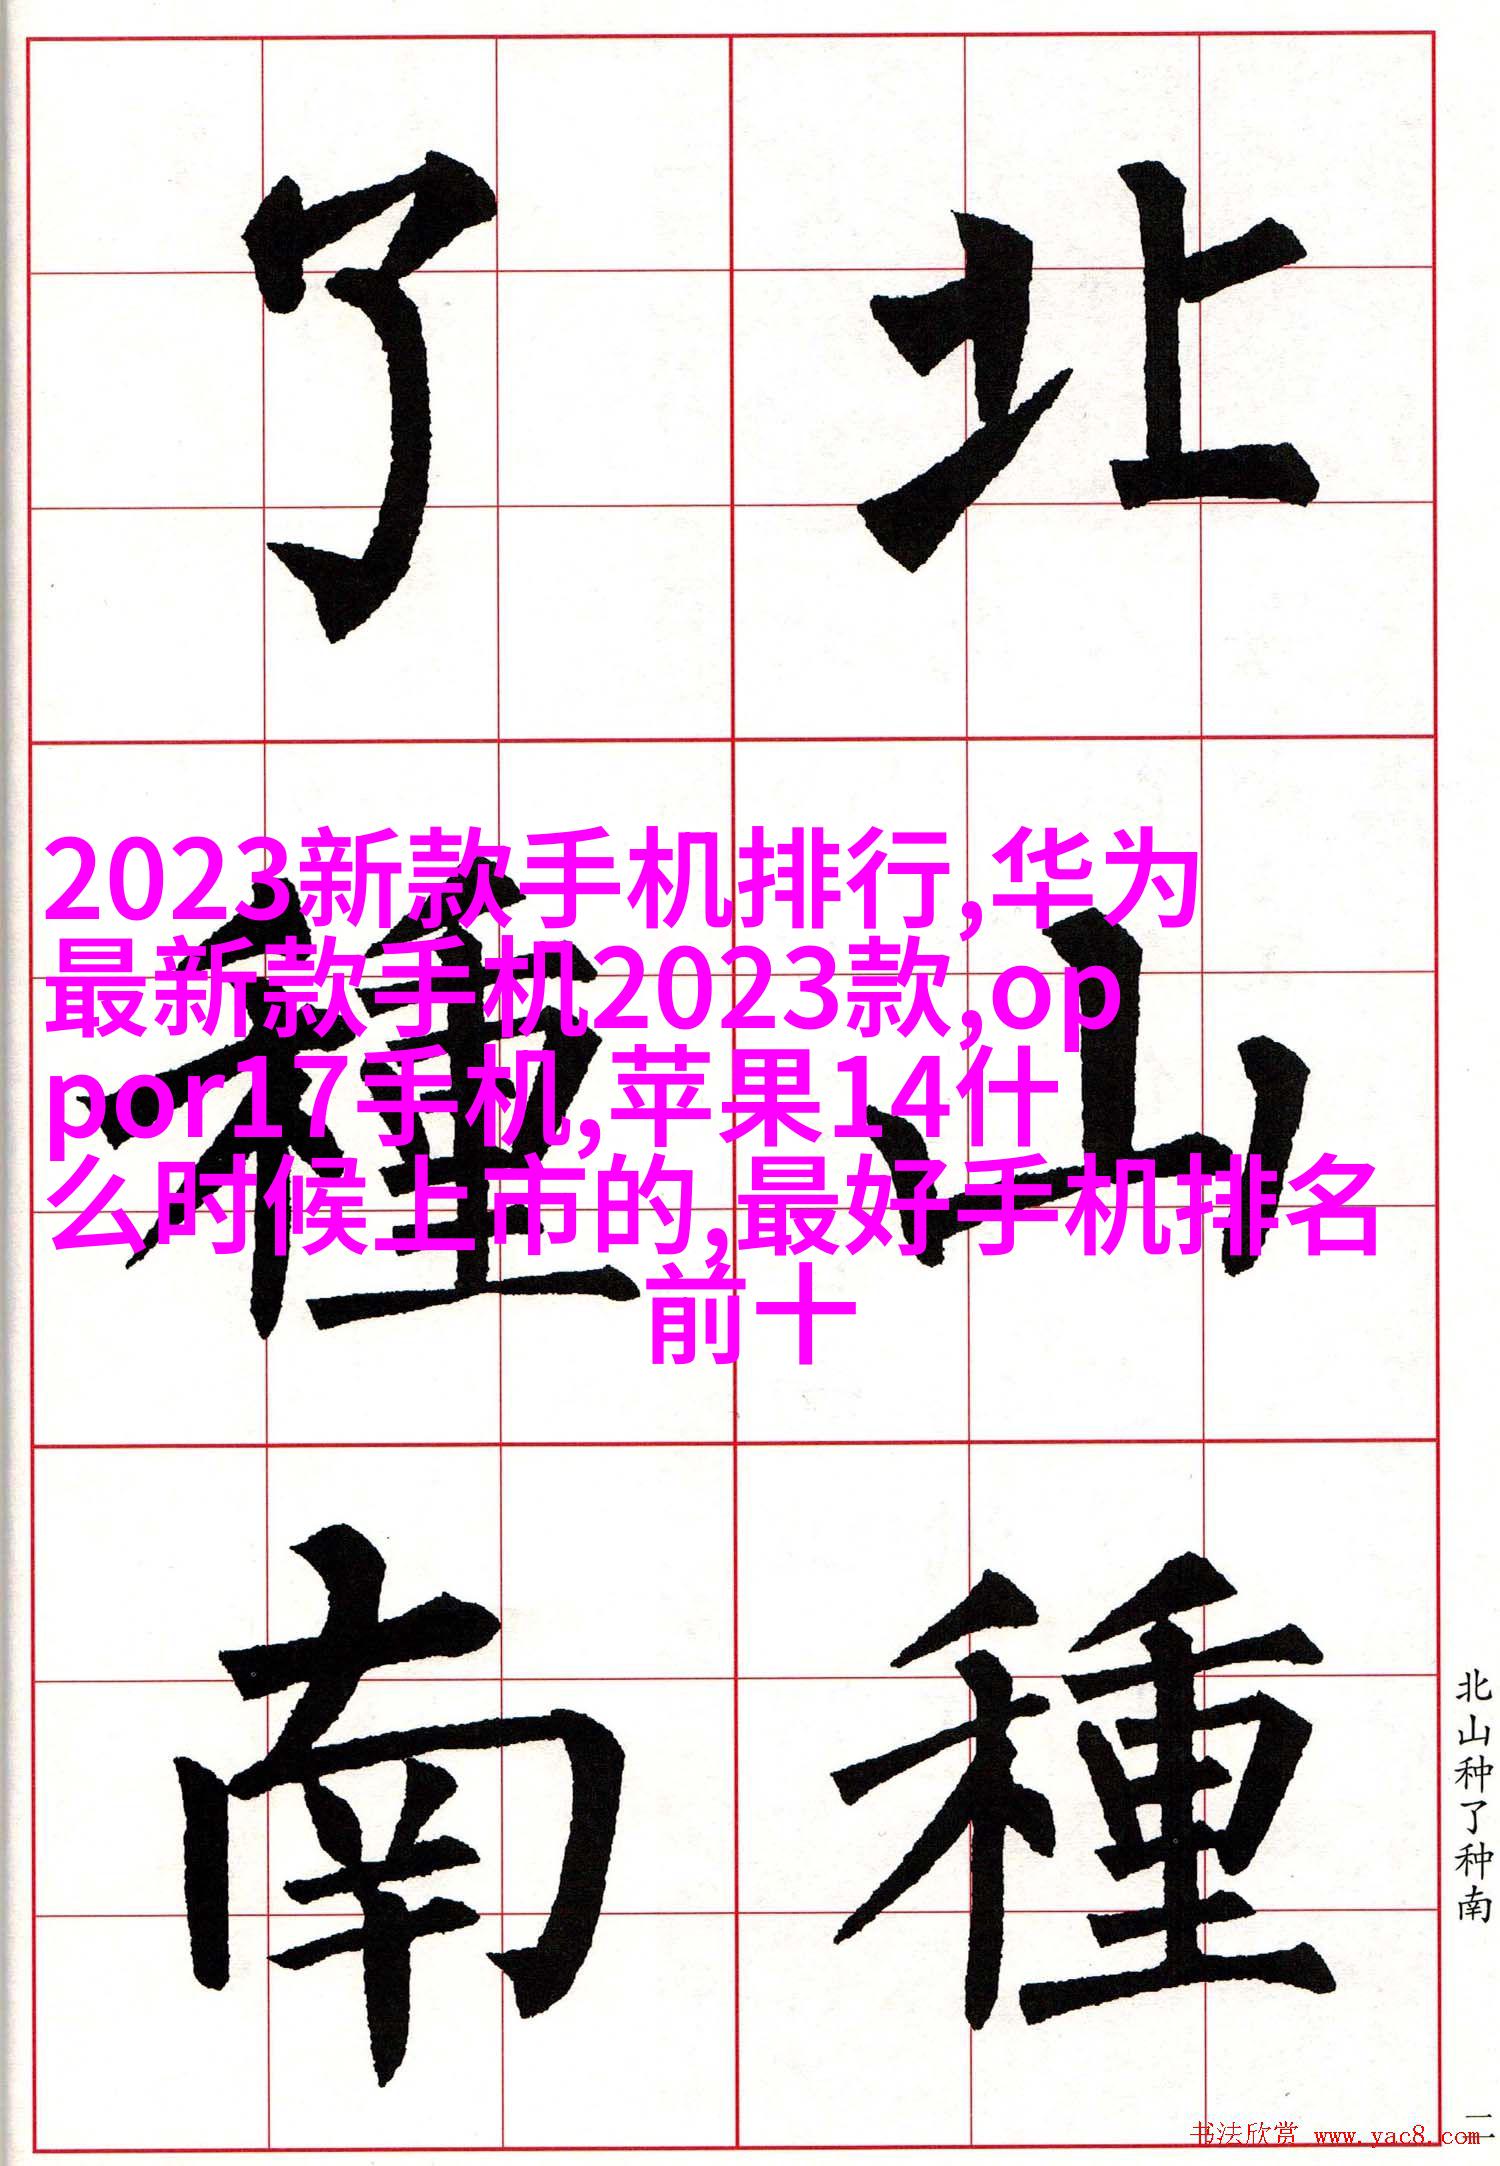 北山種
了種南
2023新款手机排行,华为
最新款手机2023款,op
por17手机,苹果14什
么时候上市的,最好手机排名
前十
北山种了种南
二
书法欣赏 www.yac8.com